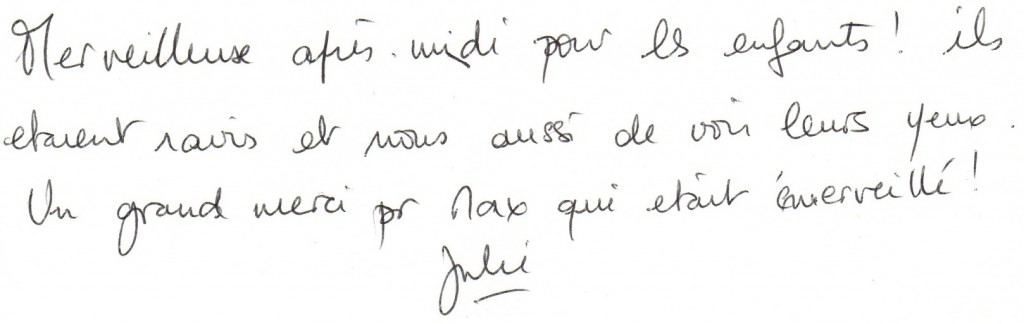 Merveilleuse après-midi pour les enfants ! ils
etaient ravis et nous aussi de voir leurs yeux.
Un grand merci pr Max qui etait émerveillé !
Julie